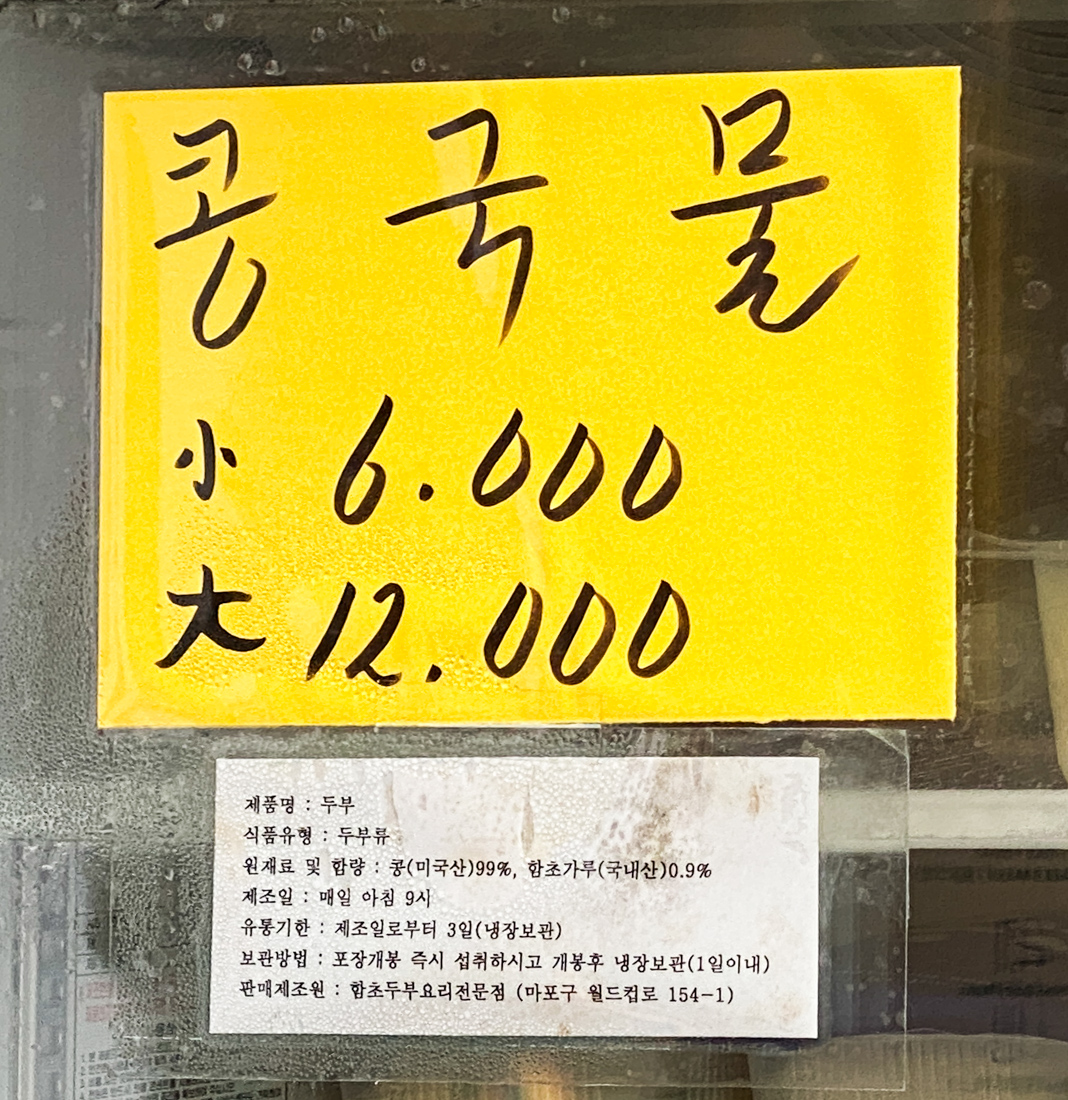 콩국물
小 6.000
大 12.000
제품명 : 두부
식품유형 : 두부류
원재료 및 함량 : 콩(미국산)99%, 함초가루(국내산)0.9%
제조일 : 매일 아침 9시
유통기한 : 제조일로부터 3일(냉장보관)
보관방법 : 포장개봉 즉시 섭취하시고 개봉후 냉장보관(1일이내)
판매제조원 : 함초두부요리전문점 (마포구 월드컵로 154-1)